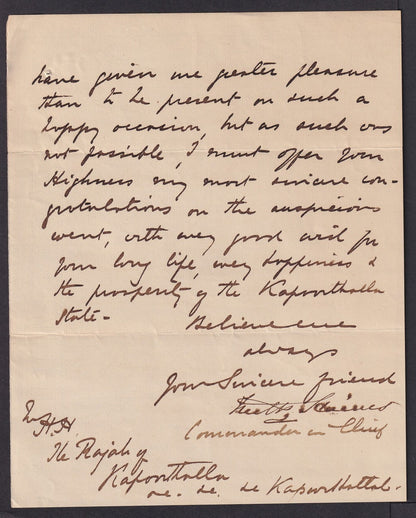 have given me greater pleasure
than to be present on such a
happy occasion, but as such was
not possible, I must offer Your
Highness my most sincere con-
gratulations on the auspicious
event, with every good wish for
your long life, every happiness &
the prosperity of the Kapoorthalla
State-
Believe me
always
Your Sincere friend
Commander in Chief
To
H.H.
The Rajah of
Kapoorthalla
&c. &c. &c Kapoorthalla.